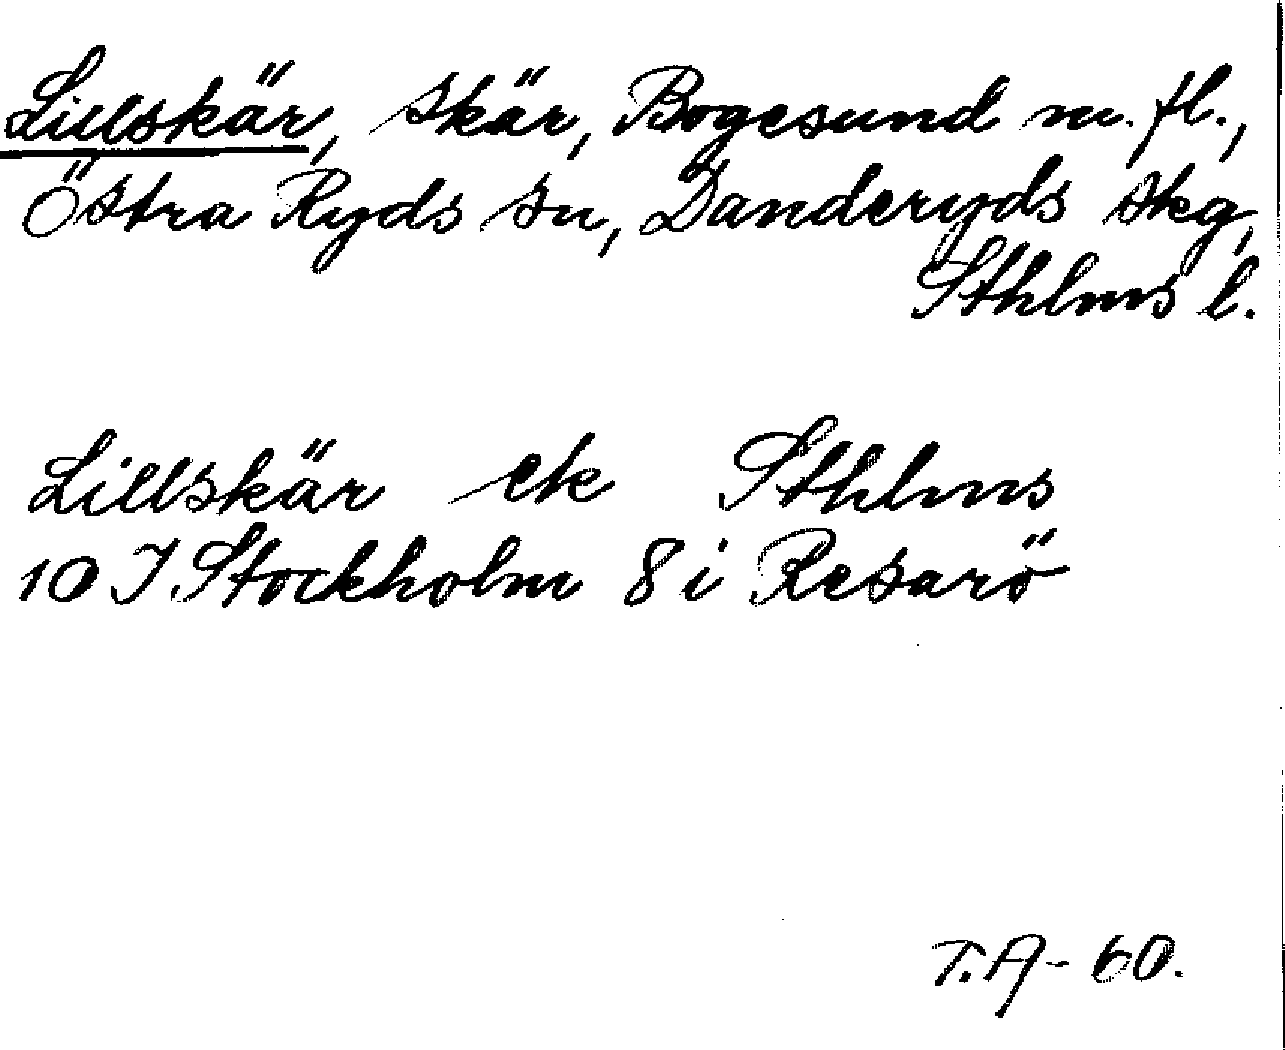 Lillskär, skär, Bogesund m. fl.,
Östra Ryds sn, Danderyds skg,
Sthlms l.
Lillskär ek Sthlms
10 I Stockholm 8 i Resarö
T.A-60.